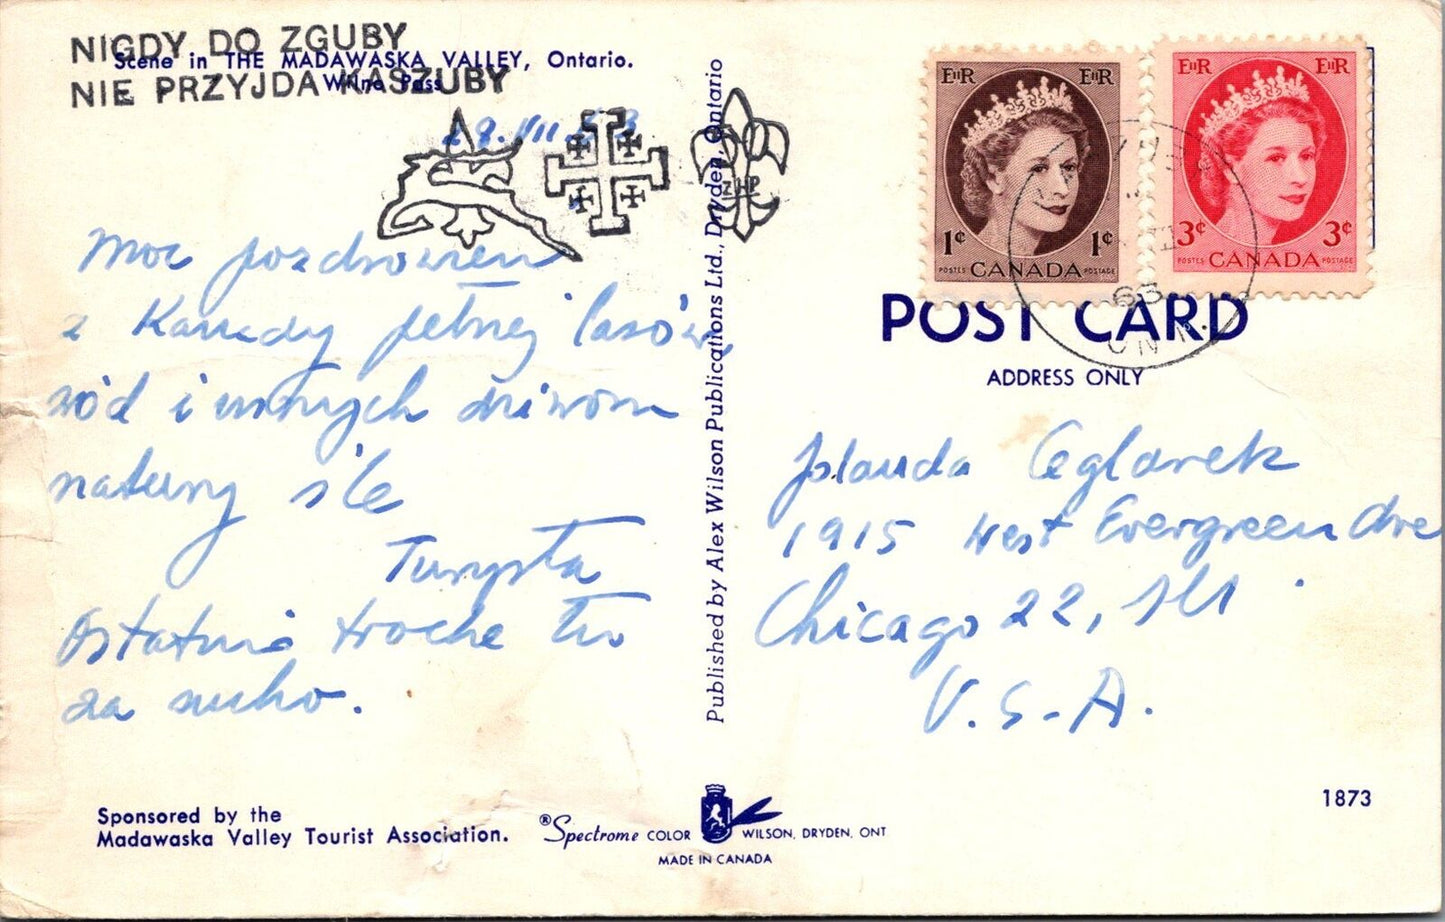 NIGDY DO ZGUBY
NIE PRZYJDA KASZUBY
Scene in THE MADAWASKA VALLEY, Ontario.
Wilno Pass
28.VII.63
ZHP
Moc pozdrowień
z Kanady pełnej lasów,
wód i innych dziwów
natury śle
Turysta
Ostatnio trochę tu
za sucho.
Sponsored by the
Madawaska Valley Tourist Association.
Published by Alex Wilson Publications Ltd., Dryden, Ontario
®Spectrome COLOR WILSON, DRYDEN, ONT
MADE IN CANADA
EIIR EIIR
1¢ 1¢
POSTES CANADA POSTAGE
EIIR EIIR
3¢ 3¢
POSTES CANADA POSTAGE
63
ONT.
POST CARD
ADDRESS ONLY
Jolanda Ceglarek
1915 West Evergreen Ave
Chicago 22, Ill
U.S.A.
1873